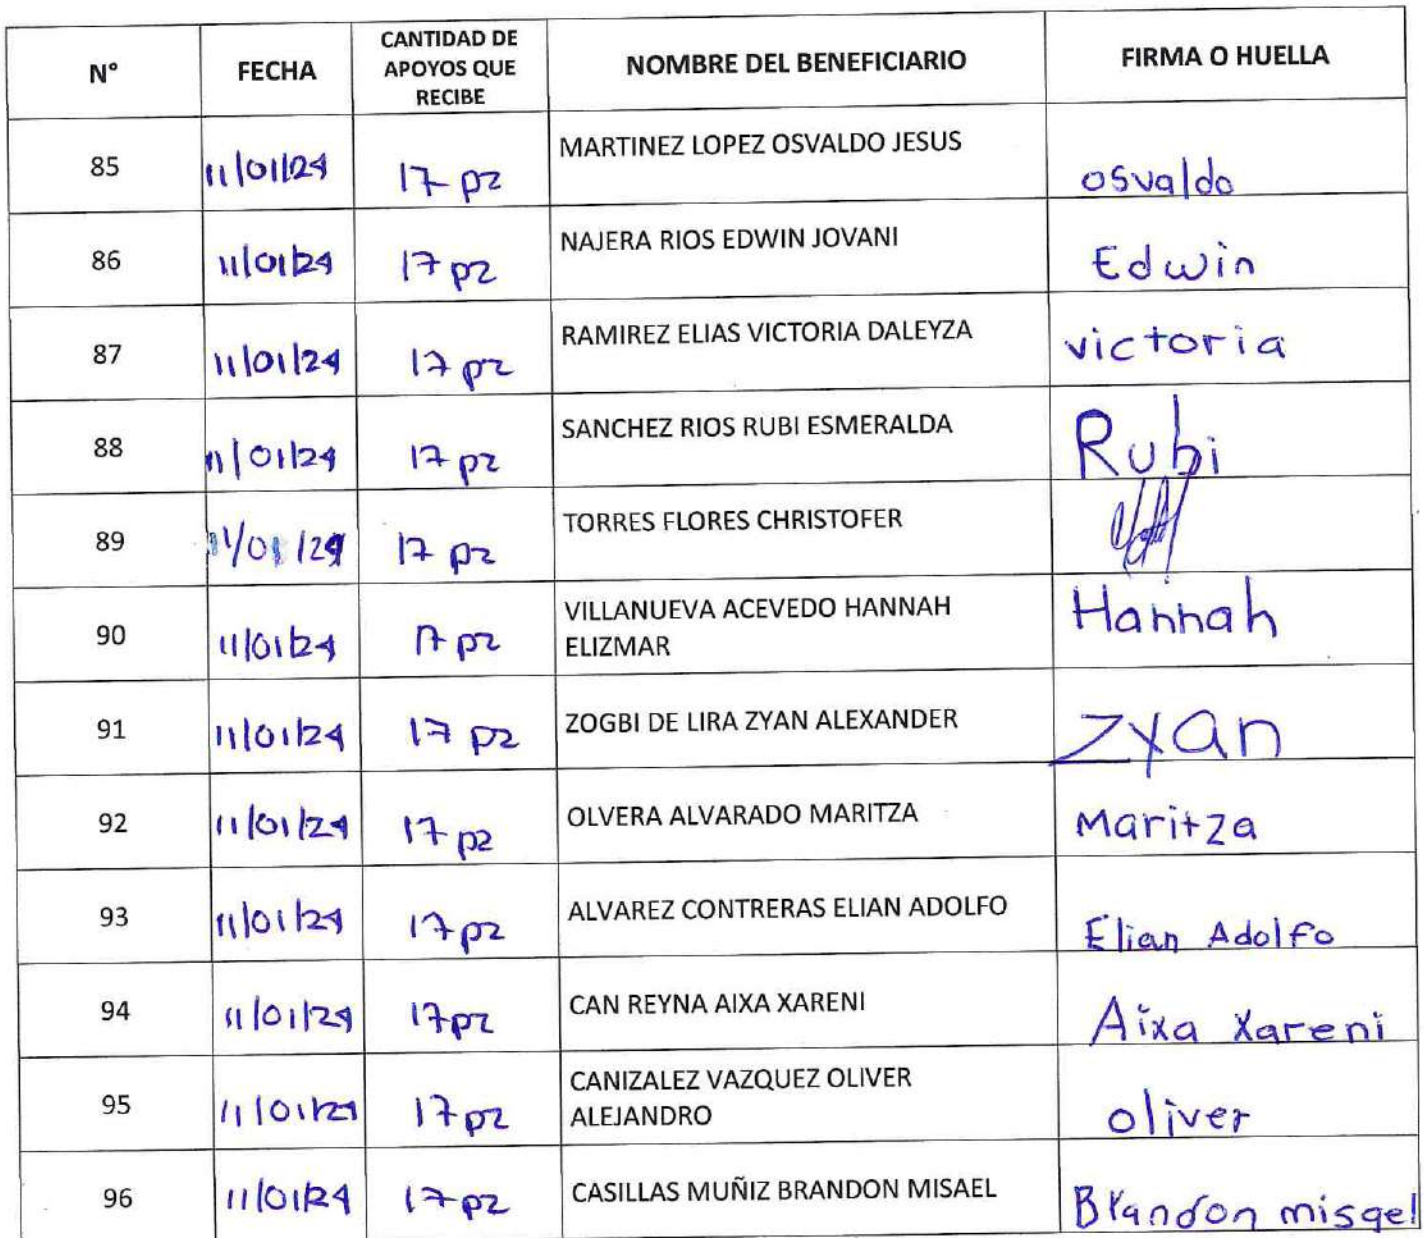 N° FECHA CANTIDAD DE APOYOS QUE RECIBE NOMBRE DEL BENEFICIARIO FIRMA O HUELLA
85 11/01/24 17 pz MARTINEZ LOPEZ OSVALDO JESUS osvaldo
86 11/01/24 17 pz NAJERA RIOS EDWIN JOVANI Edwin
87 11/01/24 17 pz RAMIREZ ELIAS VICTORIA DALEYZA victoria
88 11/01/24 17 pz SANCHEZ RIOS RUBI ESMERALDA Rubi
89 11/01/24 17 pz TORRES FLORES CHRISTOFER
90 11/01/24 17 pz VILLANUEVA ACEVEDO HANNAH ELIZMAR Hannah
91 11/01/24 17 pz ZOGBI DE LIRA ZYAN ALEXANDER Zyan
92 11/01/24 17 pz OLVERA ALVARADO MARITZA Maritza
93 11/01/24 17 pz ALVAREZ CONTRERAS ELIAN ADOLFO Elian Adolfo
94 11/01/24 17 pz CAN REYNA AIXA XARENI Aixa Xareni
95 11/01/24 17 pz CANIZALEZ VAZQUEZ OLIVER ALEJANDRO oliver
96 11/01/24 17 pz CASILLAS MUÑIZ BRANDON MISAEL Brandon misael